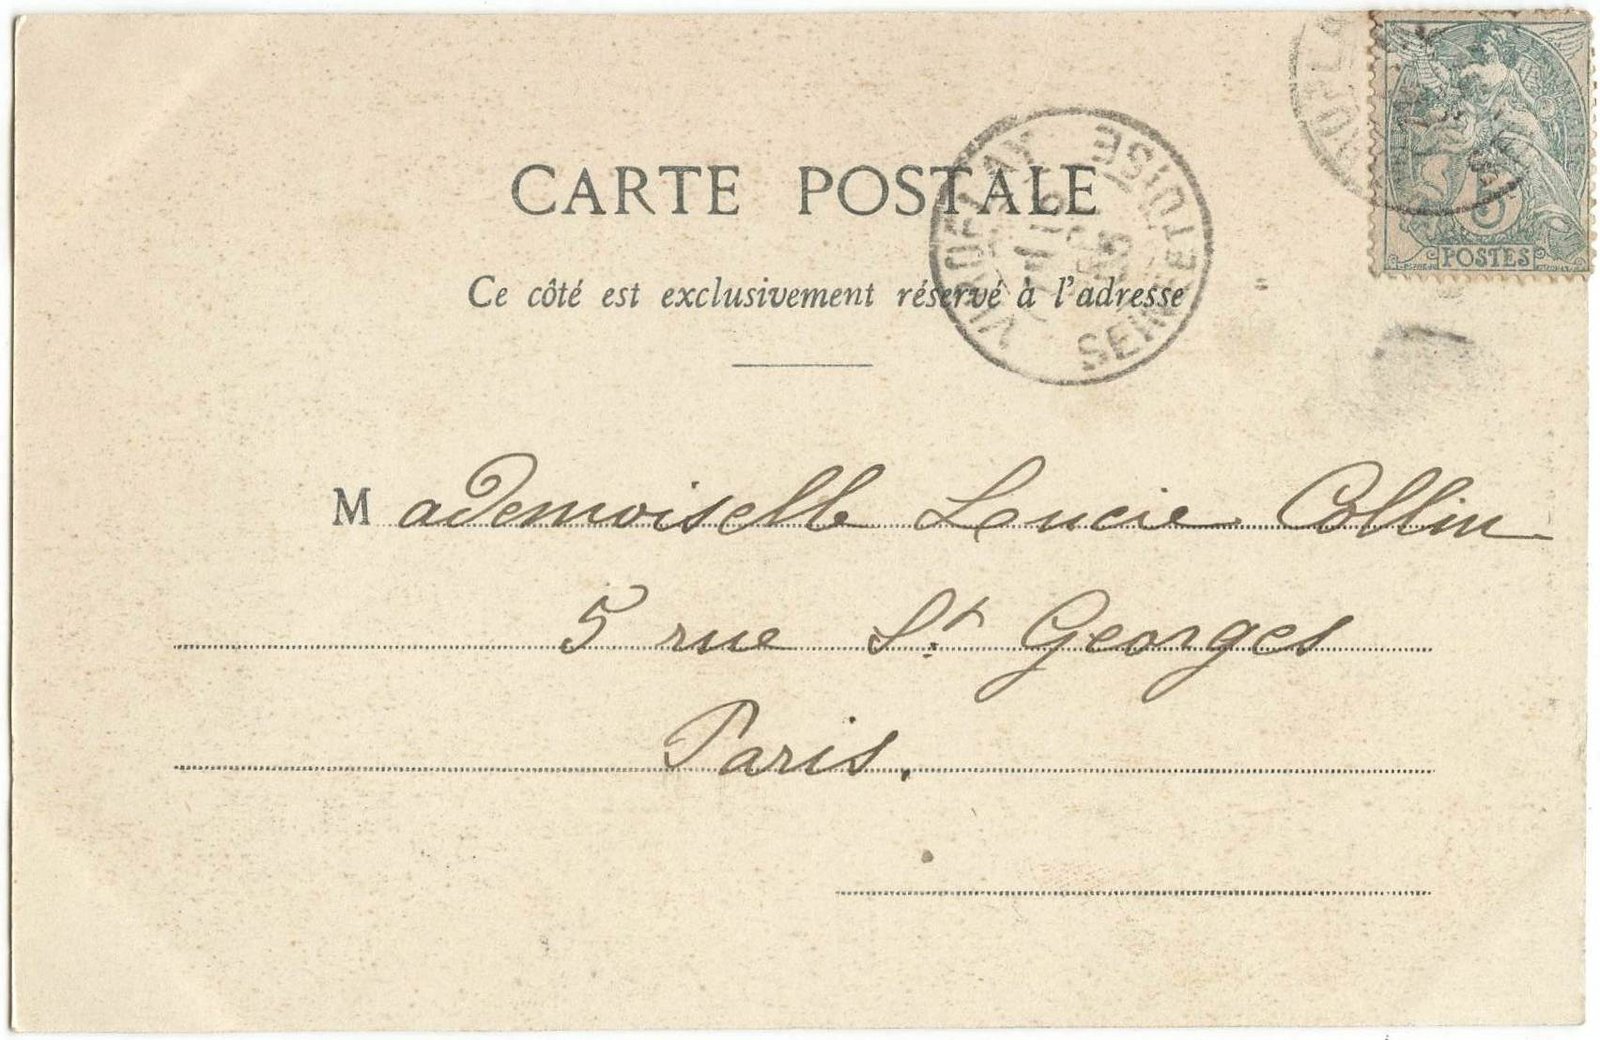 CARTE POSTALE
Ce côté est exclusivement réservé à l'adresse
VIROFLAY
SEINE ET OISE
5
POSTES
Mademoiselle Lucie Collin
5 rue St Georges
Paris.